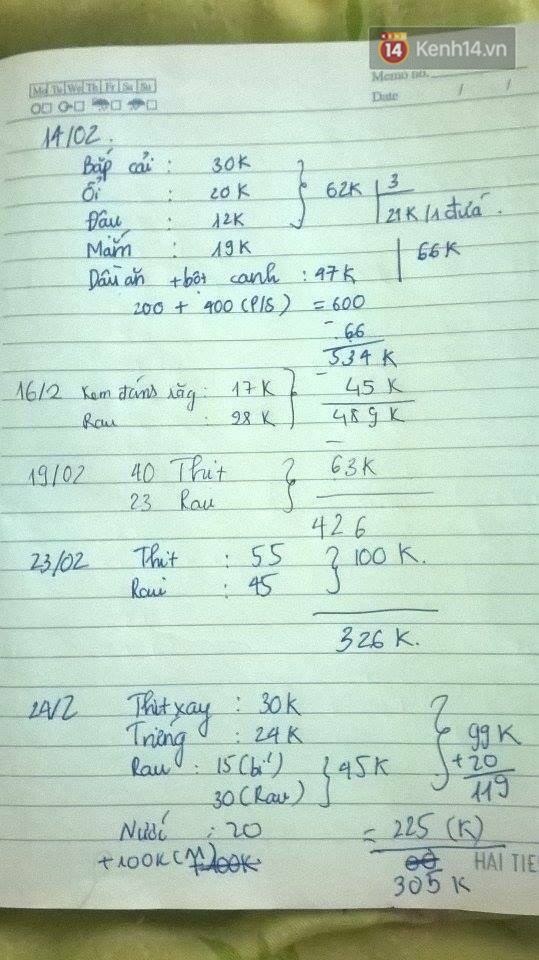 14 Kenh14.vn
Mo Tu We Th Fr Sa Su
Memo no.
Date / /
14/02.
Bắp cải : 30K
Ổi : 20K
62K | 3
Đâu : 12K
21K/1 đứa.
Mắm : 19K
66K
Dầu ăn + bột canh : 47K
200 + 400 (P/S) = 600
- 66
534 K
16/2 Kem đánh răg : 17K
- 45 K
Rau : 28K
489 K
19/02 40 Thịt
- 63K
23 Rau
426
23/02 Thịt : 55
100 K.
Rau : 45
326 K.
24/2 Thịt xay : 30K
Trứng : 24K
99K
Rau : 15 (bí) 45K
+20
30 (Rau)
119
Nước : 20
= 225 (K)
+100K (M) +100K
HAI TIE
305 K